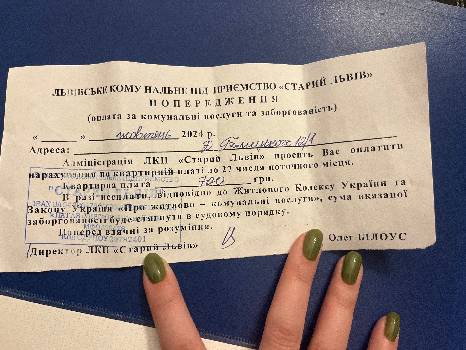 ЛЬВІВСЬКЕ КОМУНАЛЬНЕ ПІДПРИЄМСТВО «СТАРИЙ ЛЬВІВ»
ПОПЕРЕДЖЕННЯ
(оплата за комунальні послуги та заборгованість)
« » жовтень 2024 р.
Адреса:
Адміністрація ЛКП «Старий Львів» просить Вас оплатити
нарахування по квартирній платі до 22 числа поточного місяця.
Квартирна плата 700 грн.
В разі несплати, відповідно до Житлового Кодексу України та
Закону України «Про житлово – комунальні послуги», сума вказаної
заборгованості буде стягнута в судовому порядку.
Наперед вдячні за розуміння.
Директор ЛКП «Старий Львів» Олег БІЛОУС